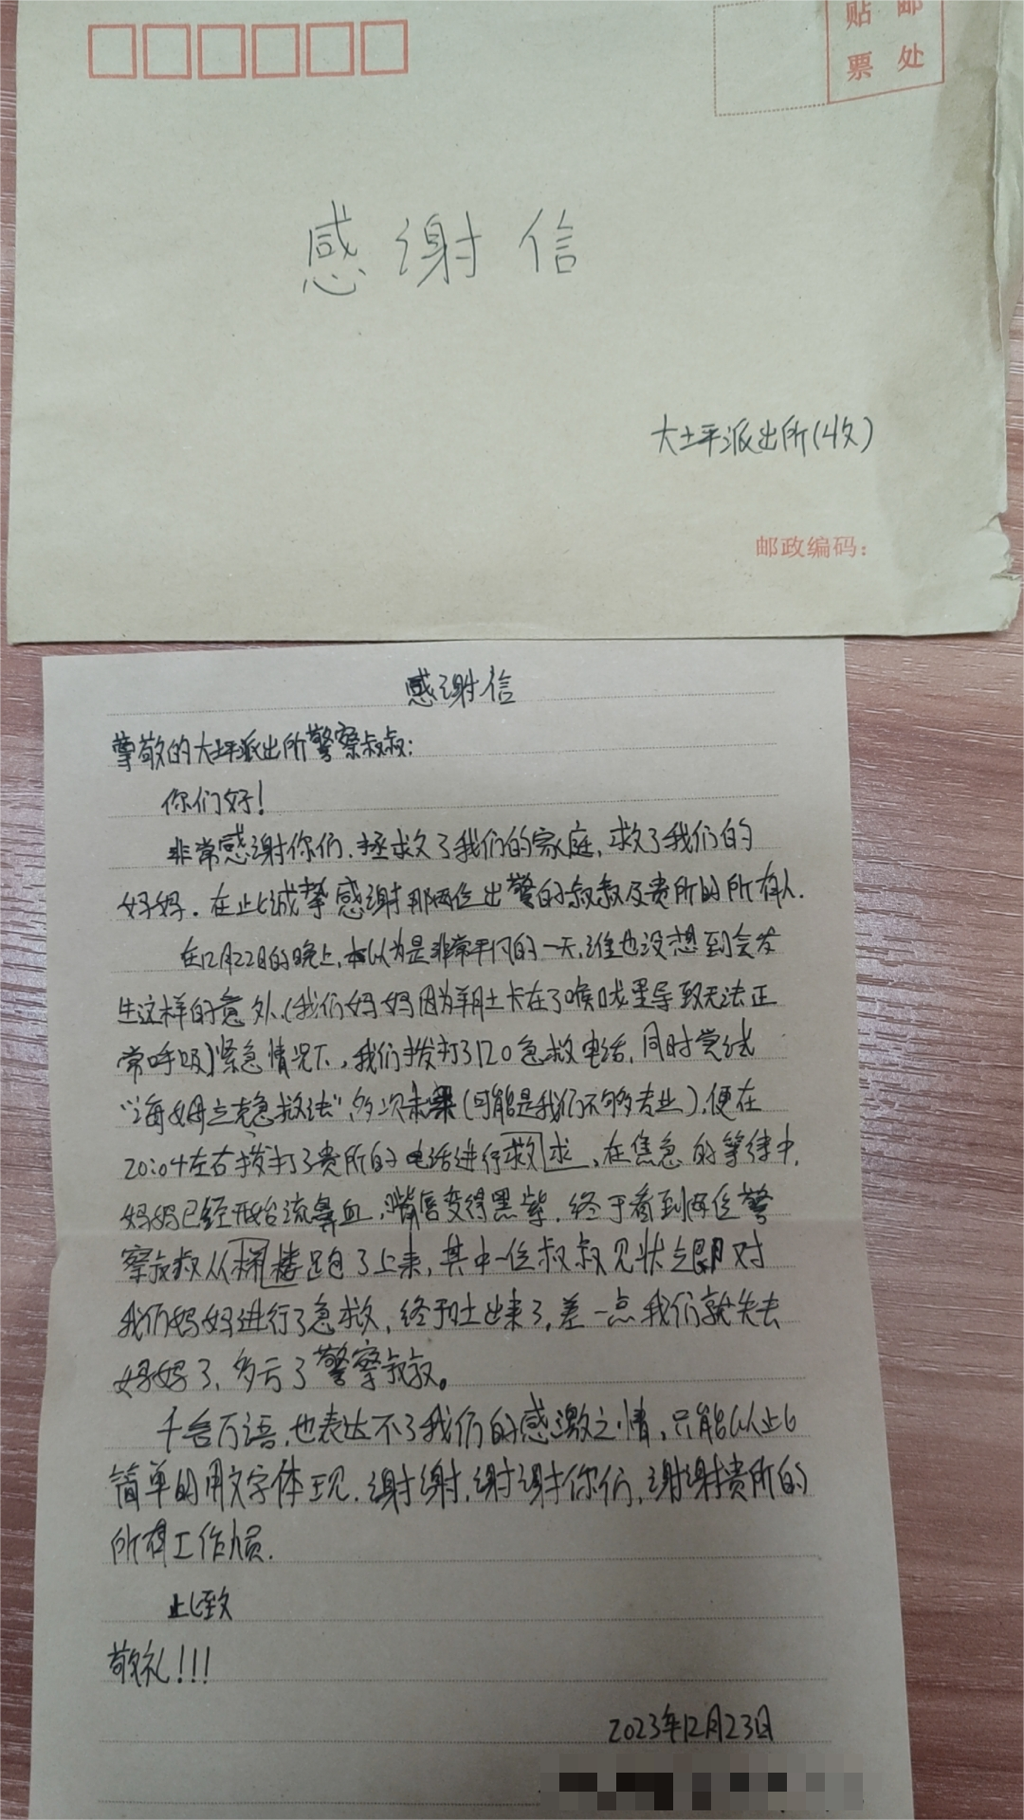 贴邮
票处
感谢信
大坪派出所(收)
邮政编码：
感谢信
尊敬的大坪派出所警察叔叔：
你们好！
非常感谢你们，拯救了我们的家庭，救了我们的
妈妈。在此诚挚感谢那两位出警的叔叔及贵所的所有人.
在12月22日的晚上，本以为是非常平凡的一天，谁也没想到会发
生这样的意外，(我们妈妈因为羊肚卡在了喉咙里导致无法正
常呼吸)紧急情况下，我们拨打了120急救电话，同时尝试
“海姆立克急救法”，多次未果(可能是我们不够专业)，便在
20:04左右拨打了贵所的电话进行救求，在焦急的等待中，
妈妈已经开始流鼻血，嘴唇变得黑紫。终于看到两位警
察叔叔从梯楼跑了上来，其中一位叔叔见状立即对
我们妈妈进行了急救，终于吐出来了，差一点我们就失去
妈妈了，多亏了警察叔叔。
千言万语，也表达不了我们的感激之情，只能以此
简单的用文字体现，谢谢，谢谢你们，谢谢贵所的
所有工作人员.
此致
敬礼！！！
2023年12月23日